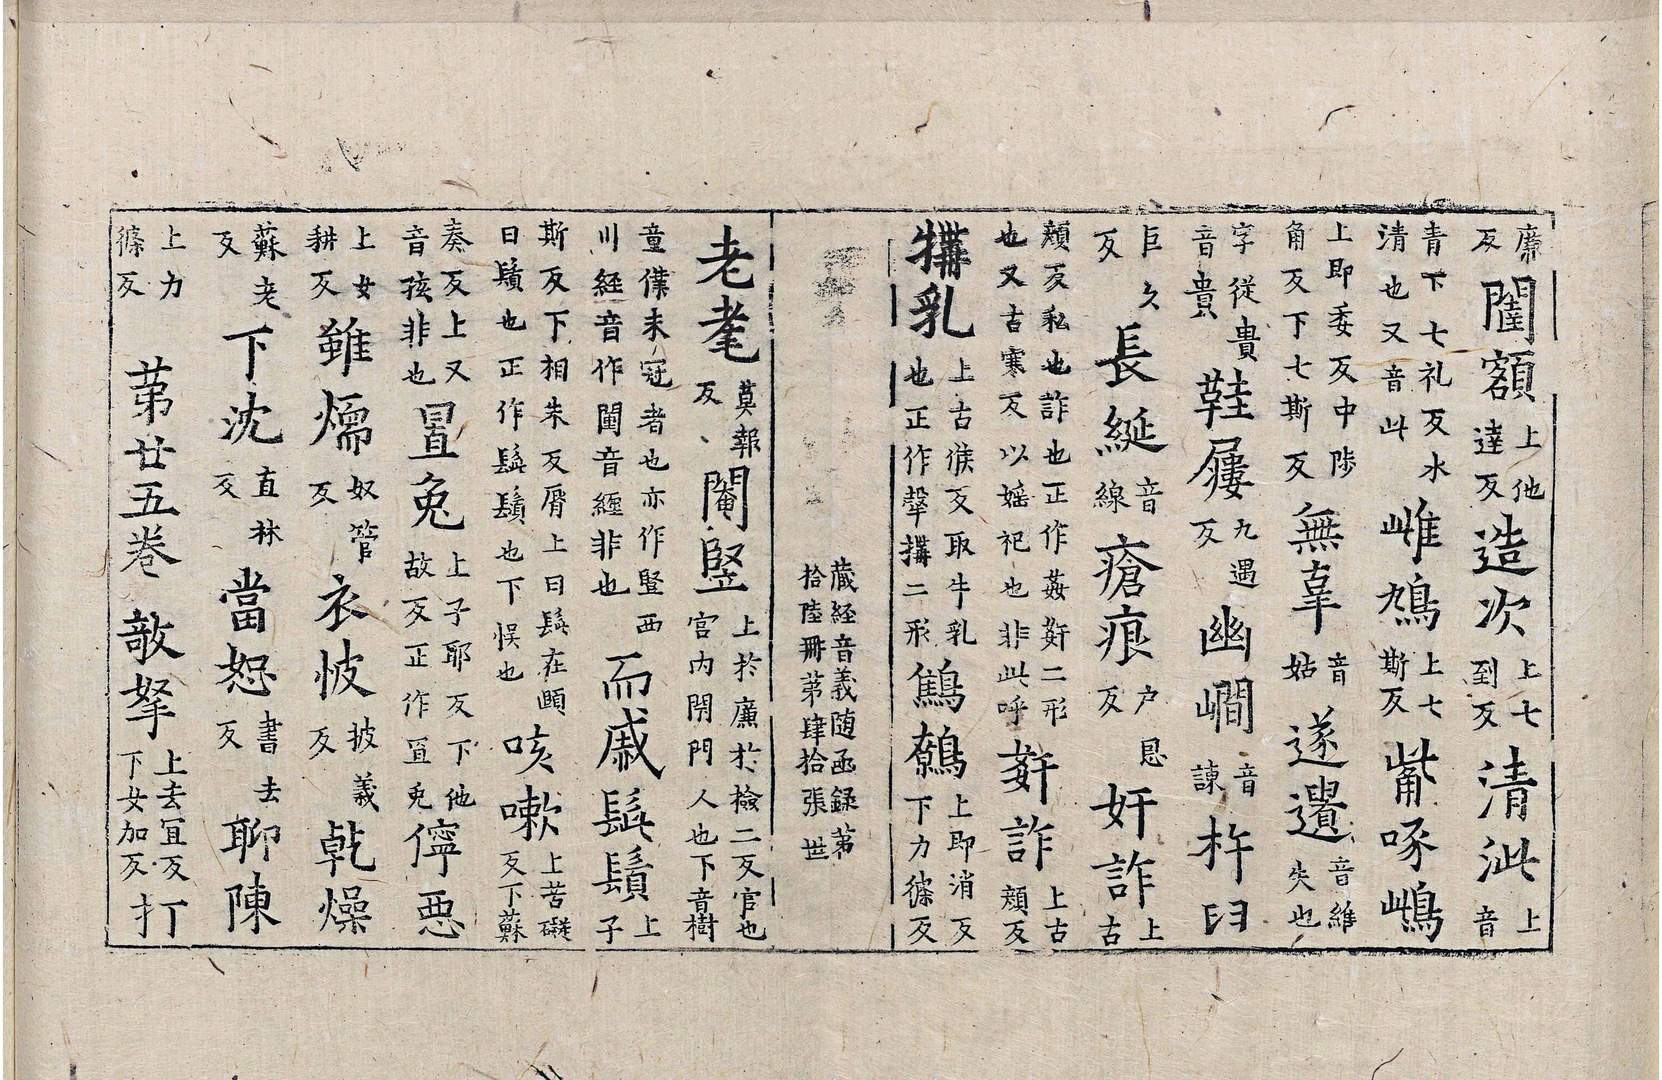 廉反闥額上他達反造次上七到反清泚上音
青下七礼反水清也又音此雌鴆上七斯反觜啄鴟
上即委反中陟角反下七斯反無辜音姑遂遺音維失也
字從貴音貴鞋屨九遇反幽㵎音諫杵臼
巨久反長綖音線瘡痕户恩反奸詐上古
顏反私也詐也正作姦姧二形也又古寒反以婬祀也非此呼姧詐上古顏反
犕乳上古候反取牛乳也正作㝅搆二形鷦鷯上即消反下力條反
藏經音義随函録第拾陸冊第肆拾張 世
老耄莫報反閹竪上於廉於檢二反官也宮内閇門人也下音樹
童僕未冠者也亦作豎西川經音作閽音經非也而戚髭鬚上子
斯反下相朱反脣上曰髭在頤曰鬚也正作髭鬚也下悮也咳嗽上苦礙反下蘇
奏反上又音孩非也罝兔上子耶反下他故反正作罝兎儜惡
上女耕反雖煗奴管反衣帔披義反乾燥
蘇老反下沈直林反當恕書去反聊陳
上力條反第廿五卷敧拏上去冝反下女加反打